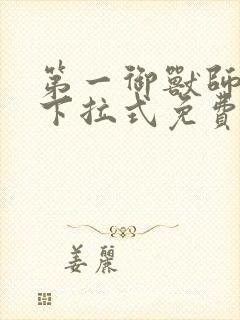 第一御獸師
下拉式免費
姜麗